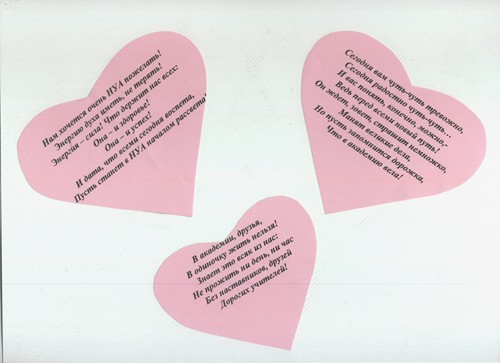 Нам хочется очень НУА пожелать!
Энергию духа иметь, не терять!
Энергия – сила! Что держит нас всех:
Она – и здоровье!
Она – и успех!
И дата, что всеми сегодня воспета,
Пусть станет в НУА началом рассвета!
Сегодня вам чуть-чуть тревожно,
Сегодня радостно чуть-чуть…
И вас понять, конечно, можно,-
Ведь перед всеми новый путь!
Он ждет, зовет, страшит немножко,
Манят великие дела,
Но пусть запомнится дорожка,
Что в академию вела!
В академии, друзья,
В одиночку жить нельзя!
Знает это всяк из нас:
Не прожить ни день, ни час
Без наставников, друзей
Дорогих учителей!